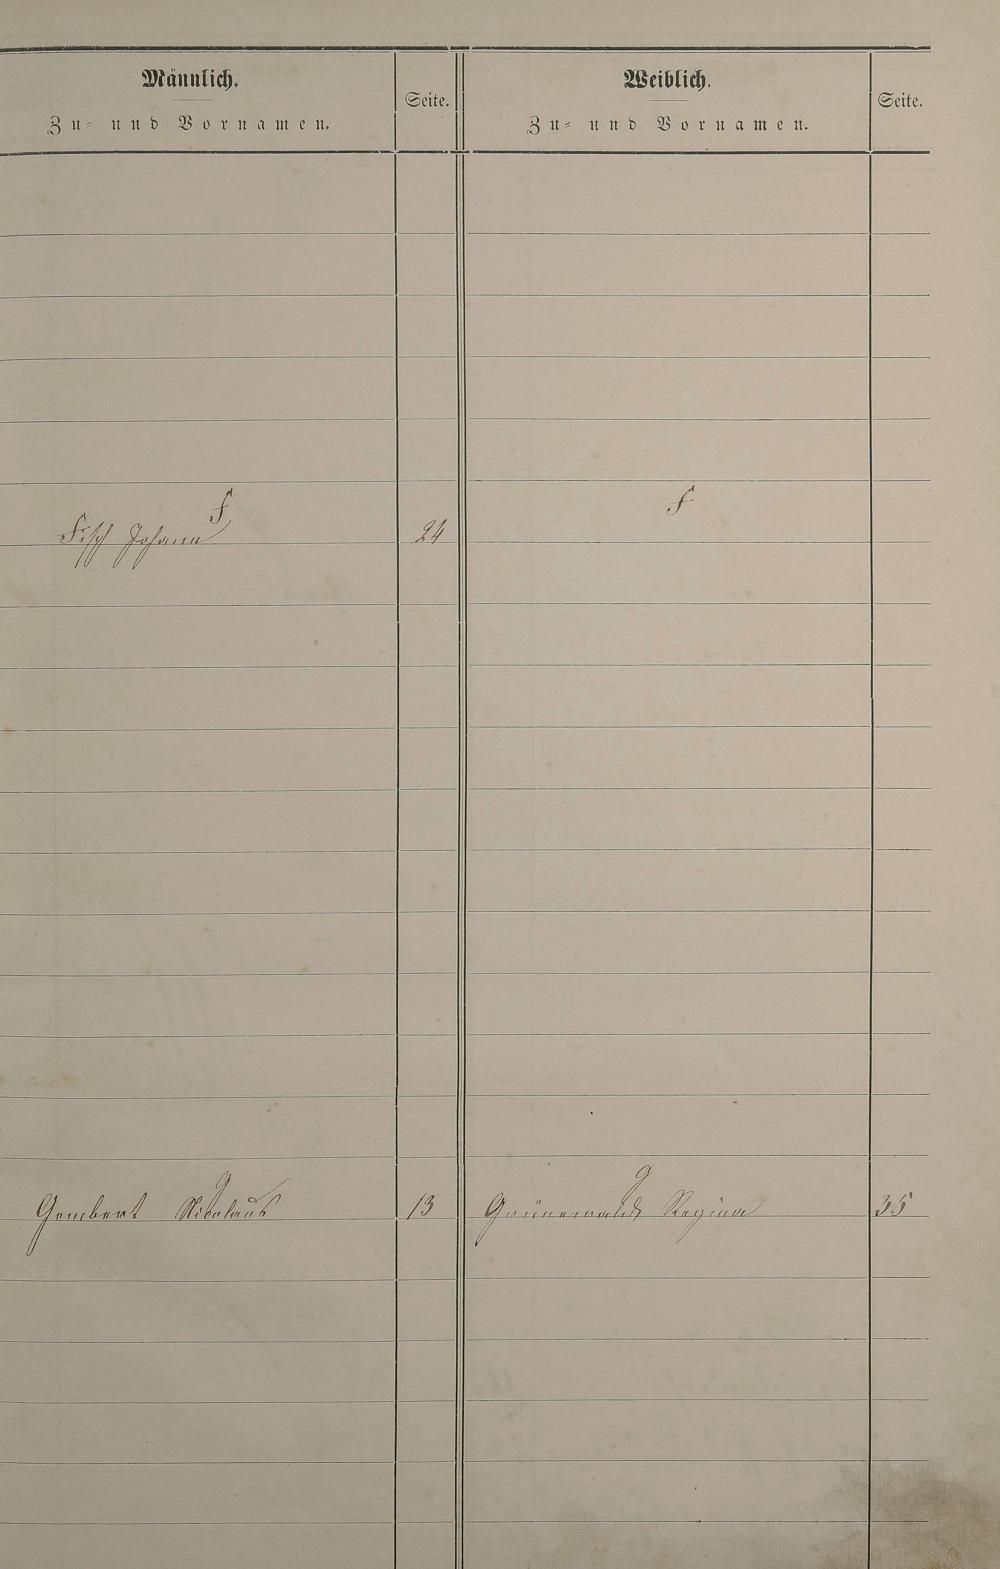 Männlich.
Zu- und Vornamen.
Seite.
Weiblich.
Zu- und Vornamen.
Seite.
F
Fisch Johann
24
F
G
Gombert Nicolaus
13
G
Grünewald Regina
35